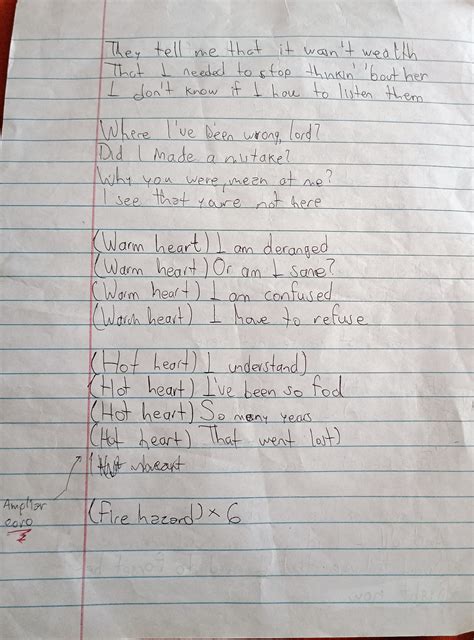 They tell me that it wasn't wealth
That I needed to stop thinkin' 'bout her
I don't know if I have to listen them
Where I've been wrong, lord?
Did I made a mistake?
Why you were mean at me?
I see that you're not here
(Warm heart) I am deranged
(Warm heart) Or am I sane?
(Warm heart) I am confused
(Warm heart) I have to refuse
(Hot heart) I understand)
(Hot heart) I've been so fod
(Hot heart) So many years
(Hot heart) That went lost)
Ampliar
coro
(Fire hazard) × 6